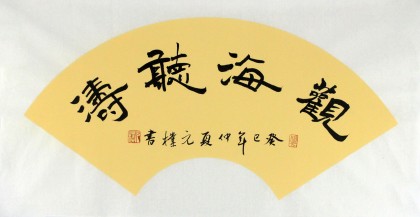 觀海聽濤
癸巳年仲夏元樸書